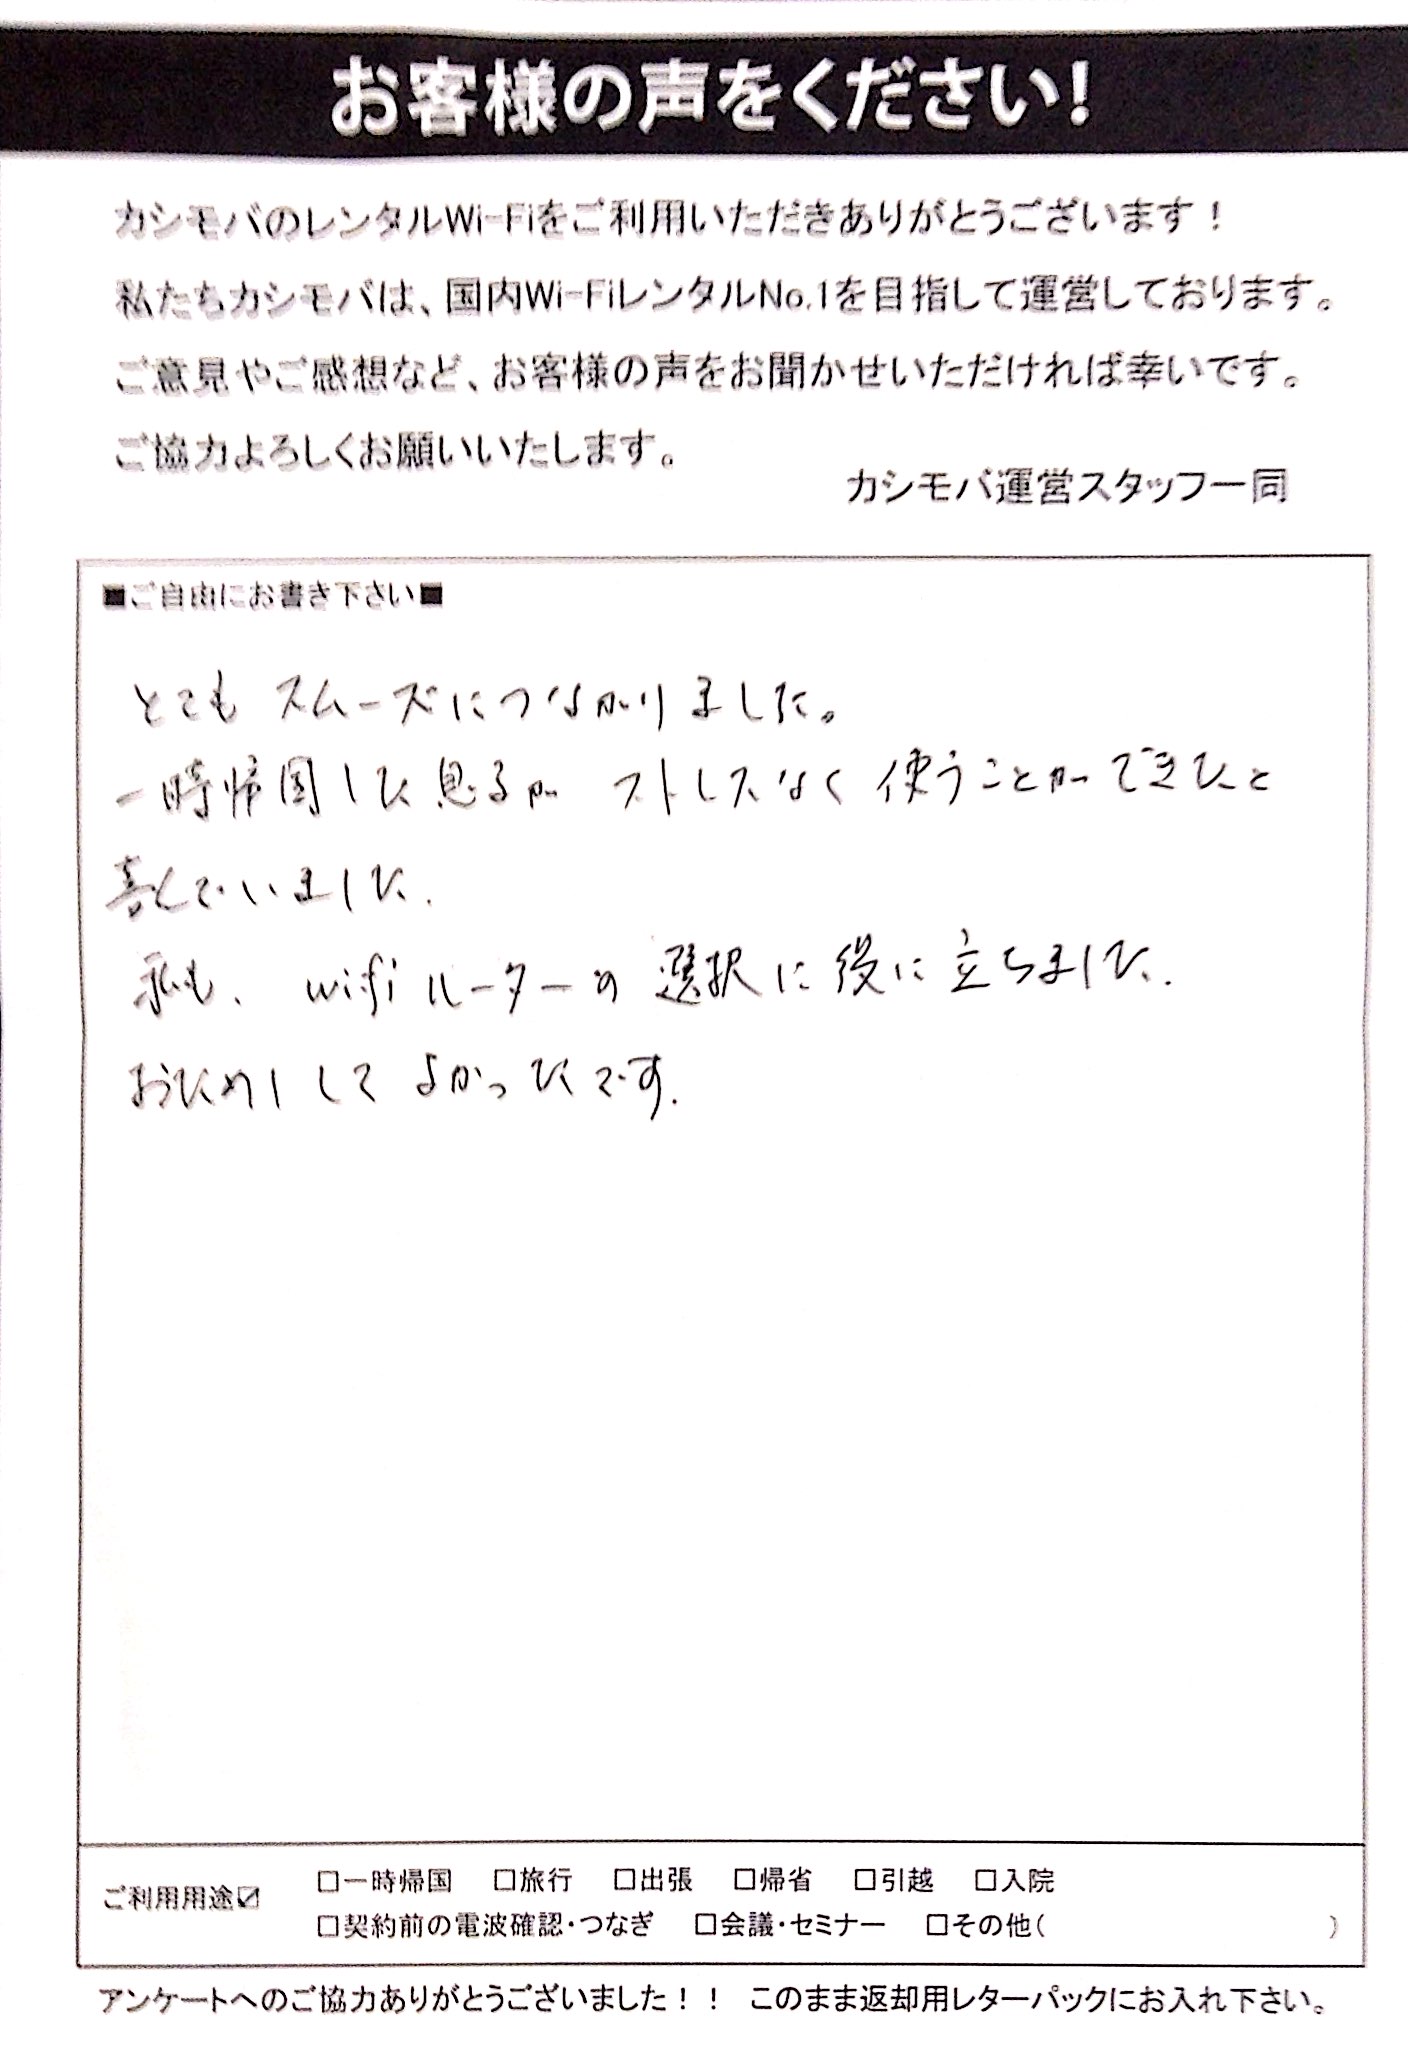 お客様の声をください!
カシモバのレンタルWi-Fiをご利用いただきありがとうございます!
私たちカシモバは、国内Wi-FiレンタルNo.1を目指して運営しております。
ご意見やご感想など、お客様の声をお聞かせいただければ幸いです。
ご協力よろしくお願いいたします。
カシモバ運営スタッフ一同
■ご自由にお書き下さい■
とても スムーズにつながりました。
一時帰国した息子が ストレスなく 使うことができたと
喜んでいました.
私も、 wifiルーターの 選択に役に立ちました.
おためしして よかったです.
ご利用用途☑
□一時帰国 □旅行 □出張 □帰省 □引越 □入院
□契約前の電波確認・つなぎ □会議・セミナー □その他( )
アンケートへのご協力ありがとうございました!! このまま返却用レターパックにお入れ下さい。